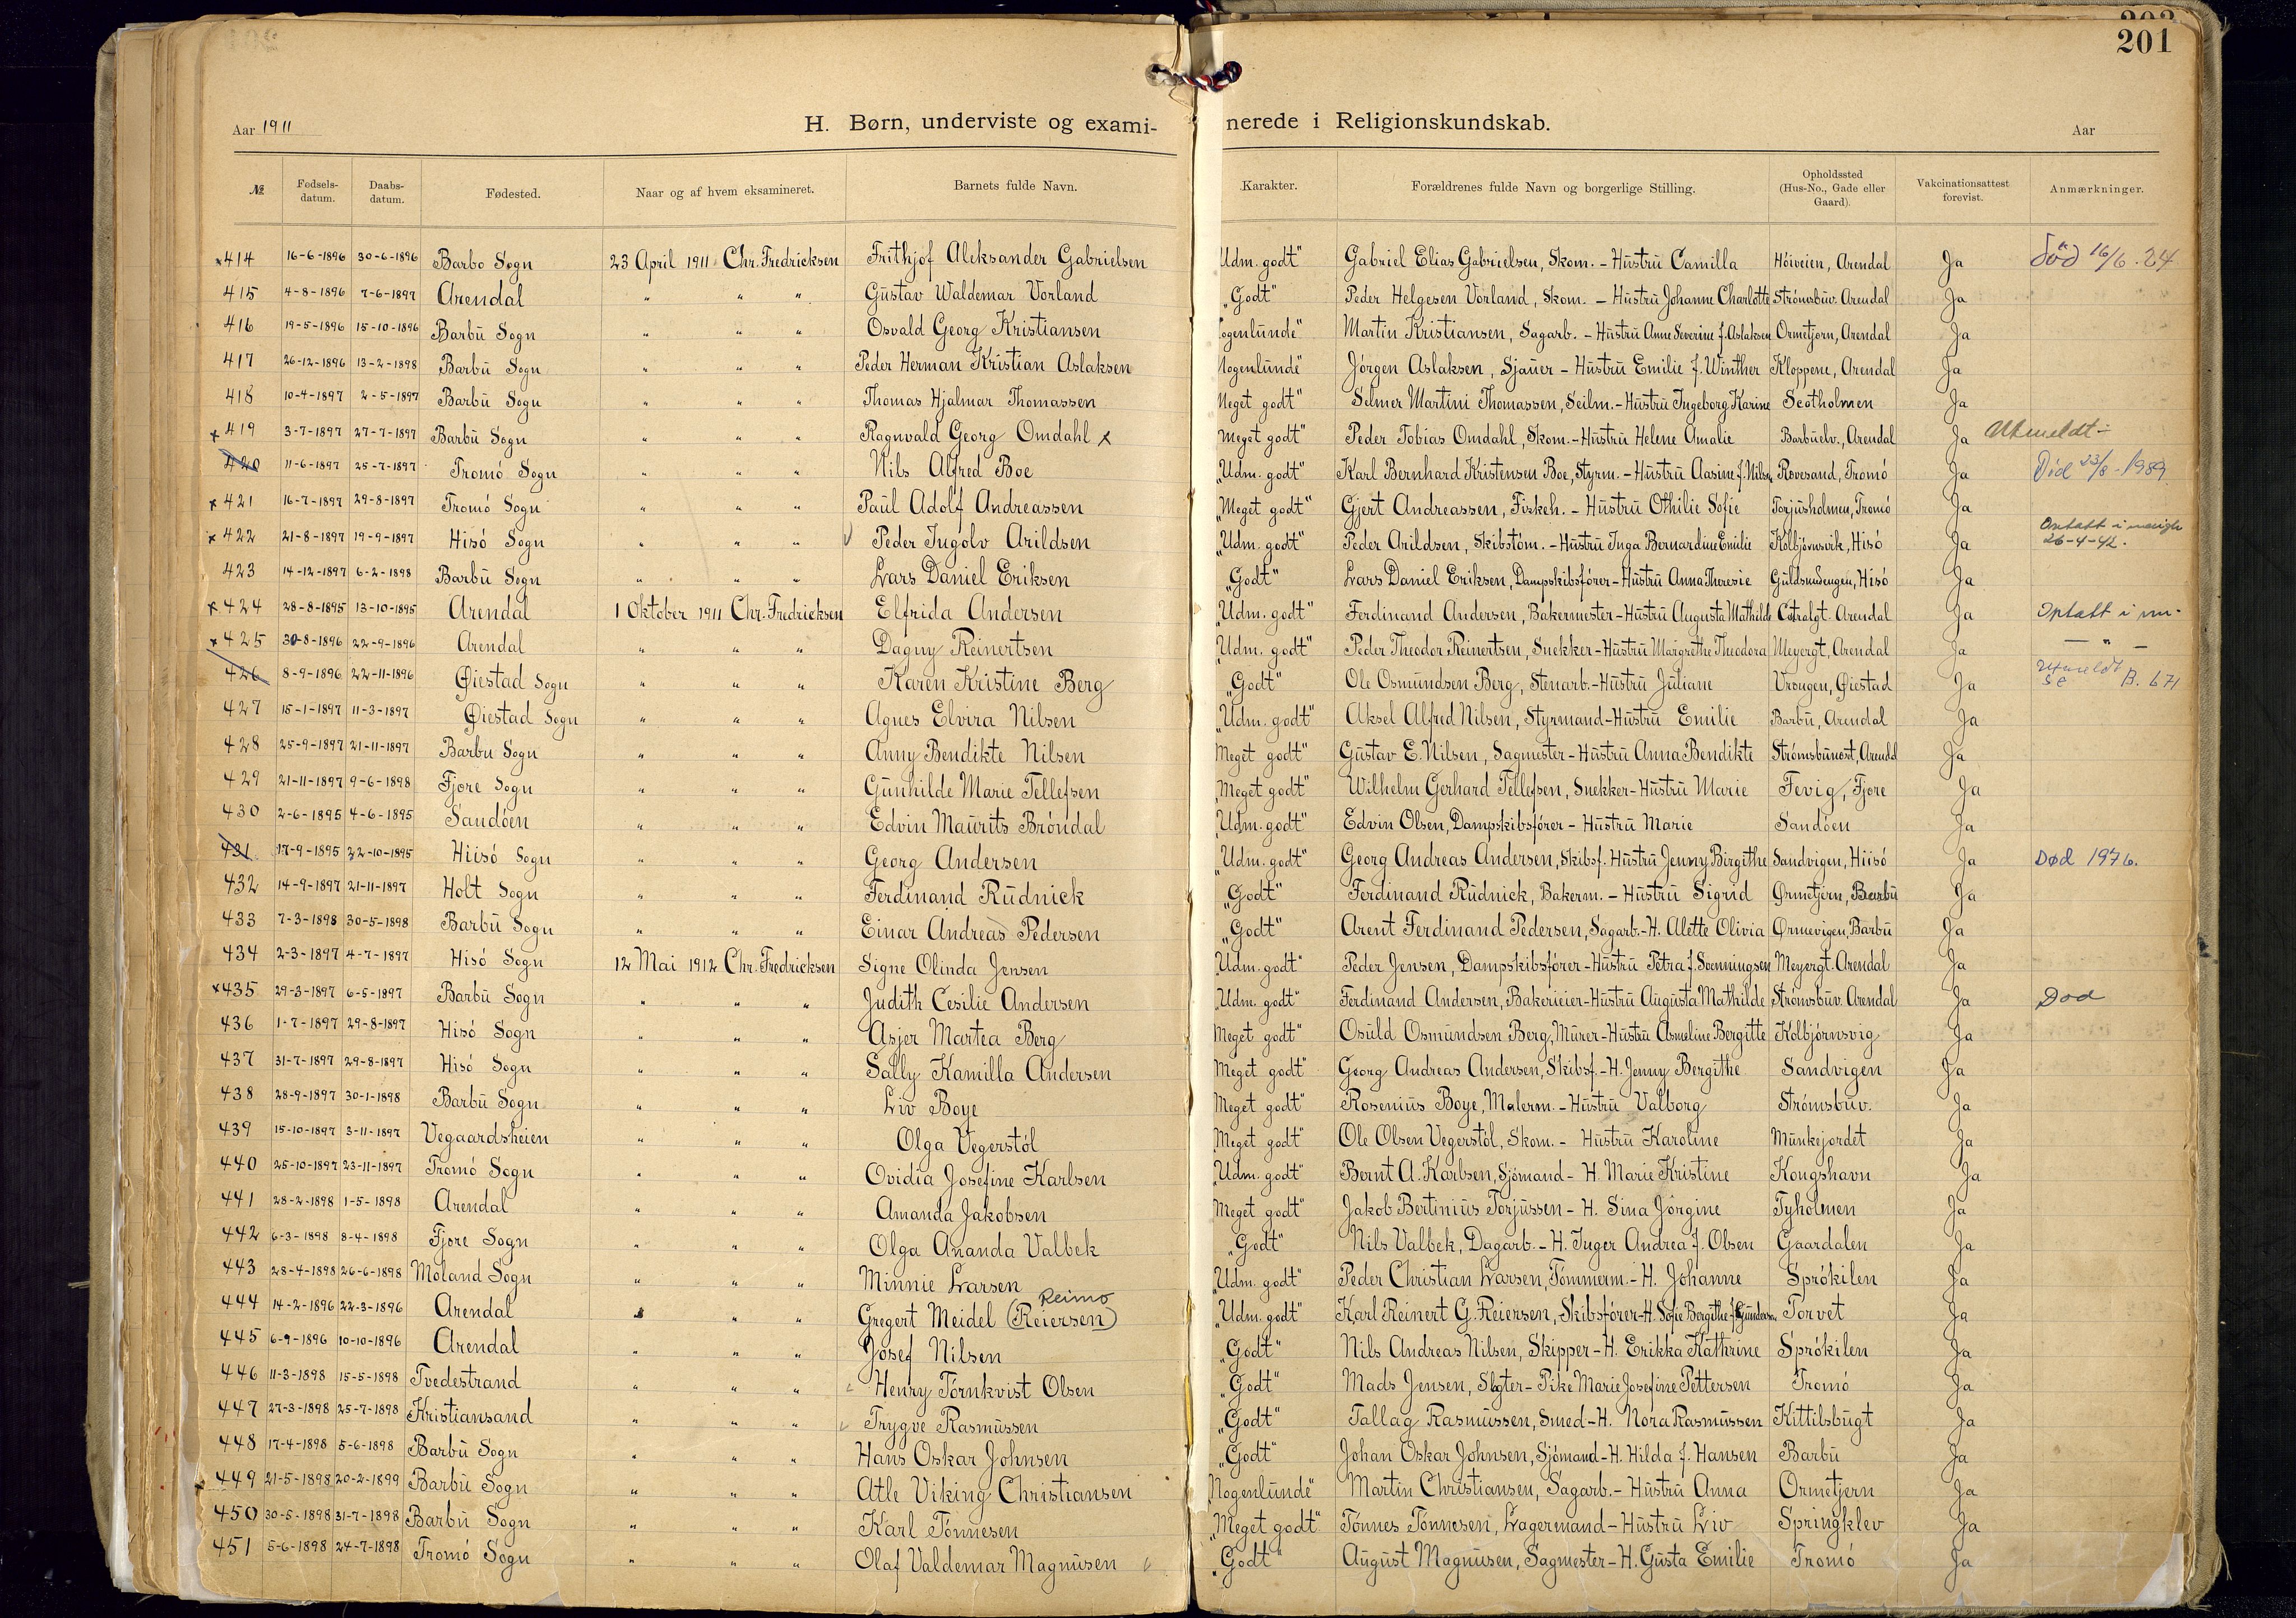 201
Aar 1911
H. Børn, underviste og exami-
nerede i Religionskundskab.
Aar
№ Fødsels-datum. Daabs-datum. Fødested. Naar og af hvem eksamineret. Barnets fulde Navn. Karakter. Forældrenes fulde Navn og borgerlige Stilling. Opholdssted (Hus-No., Gade eller Gaard). Vakcinationsattest forevist. Anmærkninger.
×414 16-6-1896 30-6-1896 Barbo Sogn 23 April 1911 Chr. Fredricksen Frithjof Aleksander Gabrielsen Udm. godt" Gabriel Elias Gabrielsen, Skom. - Hustrü Camilla Höiveien, Arendal Ja Død 16/6. 24
415 4-8-1896 7-6-1897 Arendal " " " Güstav Waldemar Vorland "Godt" Peder Helgesen Vorland, Skom. - Hüstrü Johanne Charlotte Strömsbüv. Arendal Ja
416 19-5-1896 15-10-1896 Barbü Sogn " " " Osvald Georg Kristiansen Nogenlünde" Martin Kristiansen, Sagarb. - Hüstrü Anne Severine f. Aslaksen Ormetjorn, Arendal Ja
417 26-12-1896 13-2-1898 Barbü Sogn " " " Peder Herman Kristian Aslaksen Nogenlünde" Jörgen Aslaksen, Sjauer - Hüstrü Emilie f. Winther Kloppene, Arendal Ja
418 10-4-1897 2-5-1897 Barbü Sogn " " " Thomas Hjalmar Thomassen Meget godt" Selmer Martini Thomassen, Seilm. - Hüstrü Ingeborg Karine Scotholmen Ja
×419 3-7-1897 27-7-1897 Barbü Sogn " " " Ragnvald Georg Omdahl × Meget godt" Peder Tobias Omdahl, Skom. - Hüstrü Helene Amalie Barbüelv., Arendal Ja Utmeldt
420 11-6-1897 25-7-1897 Tromö Sogn " " " Nils Alfred Boe "Udm. godt" Karl Bernhard Kristensen Boe, Styrm. - Hüstrü Aasine f. Nilsen Rovesand, Tromö Ja Död 23/8 - 1989
×421 16-7-1897 29-8-1897 Tromö Sogn " " " Paül Adolf Andreassen "Meget godt" Gjert Andreassen, Fiskeh. - Hüstrü Othilie Sofie Torjüsholmen, Tromö Ja
×422 21-8-1897 19-9-1897 Hisö Sogn " " " Peder Ingolv Arildsen "Udm. godt" Peder Arildsen, Skibstöm. - Hüstrü Inga Bernardine Emilie Kolbjörnsvik, Hisö Ja 26-4-42.
423 14-12-1897 6-2-1898 Barbü Sogn " " " Lars Daniel Eriksen "Godt" Lars Daniel Eriksen, Dampskibsförer - Hüstrü Anna Theresie Güldsmedengen, Hisö Ja
×424 28-8-1895 13-10-1895 Arendal 1 Oktober 1911 Chr. Fredricksen Elfrida Andersen "Udm. godt" Ferdinand Andersen, Bakermester - Hüstrü Augusta Mathilde Arendal Ja Optatt i
×425 30-8-1896 22-9-1896 Arendal " " " Dagny Reinertsen "Udm. godt" Peder Theodor Reinertsen, Snekker - Hüstrü Margrethe Theodora Meyergt, Arendal Ja — " —
426 8-9-1896 22-11-1896 Øiestad Sogn " " " Karen Kristine Berg "Godt" Ole Osmündsen Berg, Stenarb. - Hüstrü Jüliane Vrengen, Øiestad Ja Utmeldt Se B. 671
427 15-1-1897 11-3-1897 Øiestad Sogn " " " Agnes Elvira Nilsen "Udm. godt" Aksel Alfred Nilsen, Styrmand - Hüstrü Emilie Barbü, Arendal Ja
428 25-9-1897 21-11-1897 Barbu Sogn " " " Anny Bendikte Nilsen Meget godt" Güstav E. Nilsen, Sagmester - Hüstrü Anna Bendikte Strömsbünest, Arendal Ja
429 21-11-1897 9-6-1898 Fjore Sogn " " " Günhilde Marie Tellefsen Meget godt" Wilhelm Gerhard Tellefsen, Snekker - Hüstrü Marie Fevig, Fjore Ja
430 2-6-1895 4-6-1895 Sandöen " " " Edvin Maürits Bröndal "Udm. godt" Edvin Olsen, Dampskibsförer - Hüstrü Marie Sandöen Ja
431 17-9-1895 22-10-1895 Hiisö Sogn " " " Georg Andersen "Udm. godt" Georg Andreas Andersen, Skibsf. Hüstrü Jenny Birgithe Sandvigen, Hiisö Ja Død 1976.
432 14-9-1897 21-11-1897 Holt Sogn " " " Ferdinand Rüdnick "Godt" Ferdinand Rüdnick, Bakerm. - Hüstrü Sigrid Ørmetjern, Barbü Ja
433 7-3-1898 30-5-1898 Barbü Sogn " " " Einar Andreas Pedersen "Godt" Arent Ferdinand Pedersen, Sagarb. - H. Alette Olivia Ørmevigen, Barbü Ja
434 2-3-1897 4-7-1897 Hisö Sogn 12 Mai 1912 Chr. Fredricksen Signe Olinda Jensen "Udm. godt" Peder Jensen, Dampskibsförer - Hüstrü Petra f. Soenningsen Meyergt. Arendal Ja
×435 29-3-1897 6-5-1897 Barbü Sogn " " " Judith Cesilie Andersen "Udm. godt" Ferdinand Andersen, Bakerieier - Hüstrü Augüsta Mathilde Strömsbüv. Arendal Ja Død
436 1-7-1897 29-8-1897 Hisö Sogn " " " Asjer Martea Berg Meget godt" Osüld Osmündsen Berg, Mürer - Hüstrü Asmeline Bergitte Kolbjörnsvig Ja
437 31-7-1897 29-8-1897 Hisö Sogn " " " Sally Kamilla Andersen Meget godt" Georg Andreas Andersen, Skibsf. - H. Jenny Bergithe Sandvigen Ja
438 28-9-1897 30-1-1898 Barbü Sogn " " " Liv Boye Meget godt" Rosenius Boye, Malerm. - Hüstrü Valborg Strömsbüv. Ja
439 15-10-1897 3-11-1897 Vegaardsheien " " " Olga Vegerstöl Meget godt" Ole Olsen Vegerstöl, Skom. - Hüstrü Karoline Münkejordet Ja
440 25-10-1897 23-11-1897 Tromö Sogn " " " Ovidia Josefine Karlsen "Udm. godt" Bernt A. Karlsen, Sjömand - H. Marie Kristine Kongshavn Ja
441 28-2-1898 1-5-1898 Arendal " " " Amanda Jakobsen Meget godt" Jakob Bertinius Torjüssen - H. Sina Jörgine Tyholmen Ja
442 6-3-1898 8-4-1898 Fjore Sogn " " " Olga Ananda Valbek "Godt" Nils Valbek, Dagarb. - H. Inger Andrea f. Olsen Gaardalen Ja
443 28-4-1898 26-6-1898 Moland Sogn " " " Minnie Larsen "Udm. godt" Peder Christian Larsen, Tömmerm. - H. Johanne Sprökilen Ja
Reimo
444 14-2-1896 22-3-1896 Arendal " " " Gregert Meidel (Reiersen) "Udm. godt" Karl Reinert G. Reiersen, Skibsförer - H. Sofie Bergithe f. Gündersen Torvet Ja
445 6-9-1896 10-10-1896 Arendal " " " Josef Nilsen "Godt" Nils Andreas Nilsen, Skipper - H. Erikka Kathrine Sprökilen Ja
446 11-3-1898 15-5-1898 Tvedestrand " " " Henry Törnkvist Olsen "Godt" Mads Jensen, Slgter - Pike Marie Josefine Pettersen Tromö Ja
447 27-3-1898 25-7-1898 Kristiansand " " " Trygve Rasmüssen "Godt" Tallag Rasmüssen, Smed - H. Nora Rasmüssen Kittilsbügt Ja
448 17-4-1898 5-6-1898 Barbü Sogn " " " Hans Oskar Johnsen "Godt" Johan Oskar Johnsen, Sjömand - H. Hilda f. Hansen Barbü Ja
×449 21-5-1898 20-2-1899 Barbü Sogn " " " Atle Viking Christiansen Nogenlünde" Martin Christiansen, Sagarb. - Hüstrü Anna Ormetjern Ja
450 30-5-1898 31-7-1898 Barbü Sogn " " " Karl Tönnesen "Meget godt" Tönnes Tönnesen, Lagermand - Hüstrü Liv Springklev Ja
451 5-6-1898 24-7-1898 Tromö Sogn " " " Olaf Valdemar Magnüsen "Godt" Aügüst Magnüsen, Sagmester - H. Güsta Emilie Tromö Ja